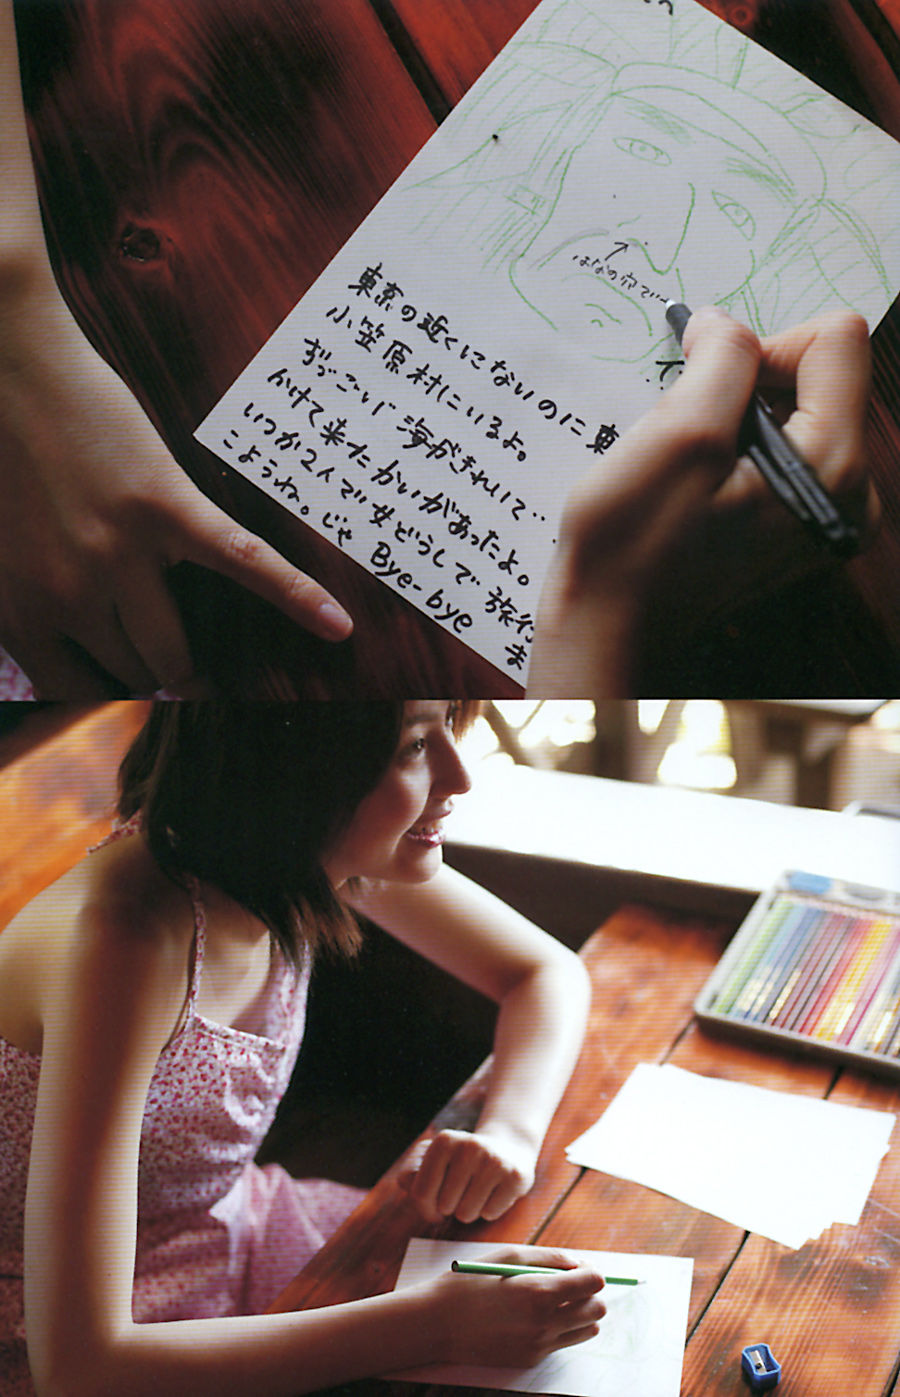 へ
はなの穴で
で‥
東京の近くにないのに東
小笠原村にいるよ。
すっごい海がきれいで‥
かけて来たかいがあったよ。
いつか2人で女どうしで旅行
こようね。じゃ Bye-bye
ま